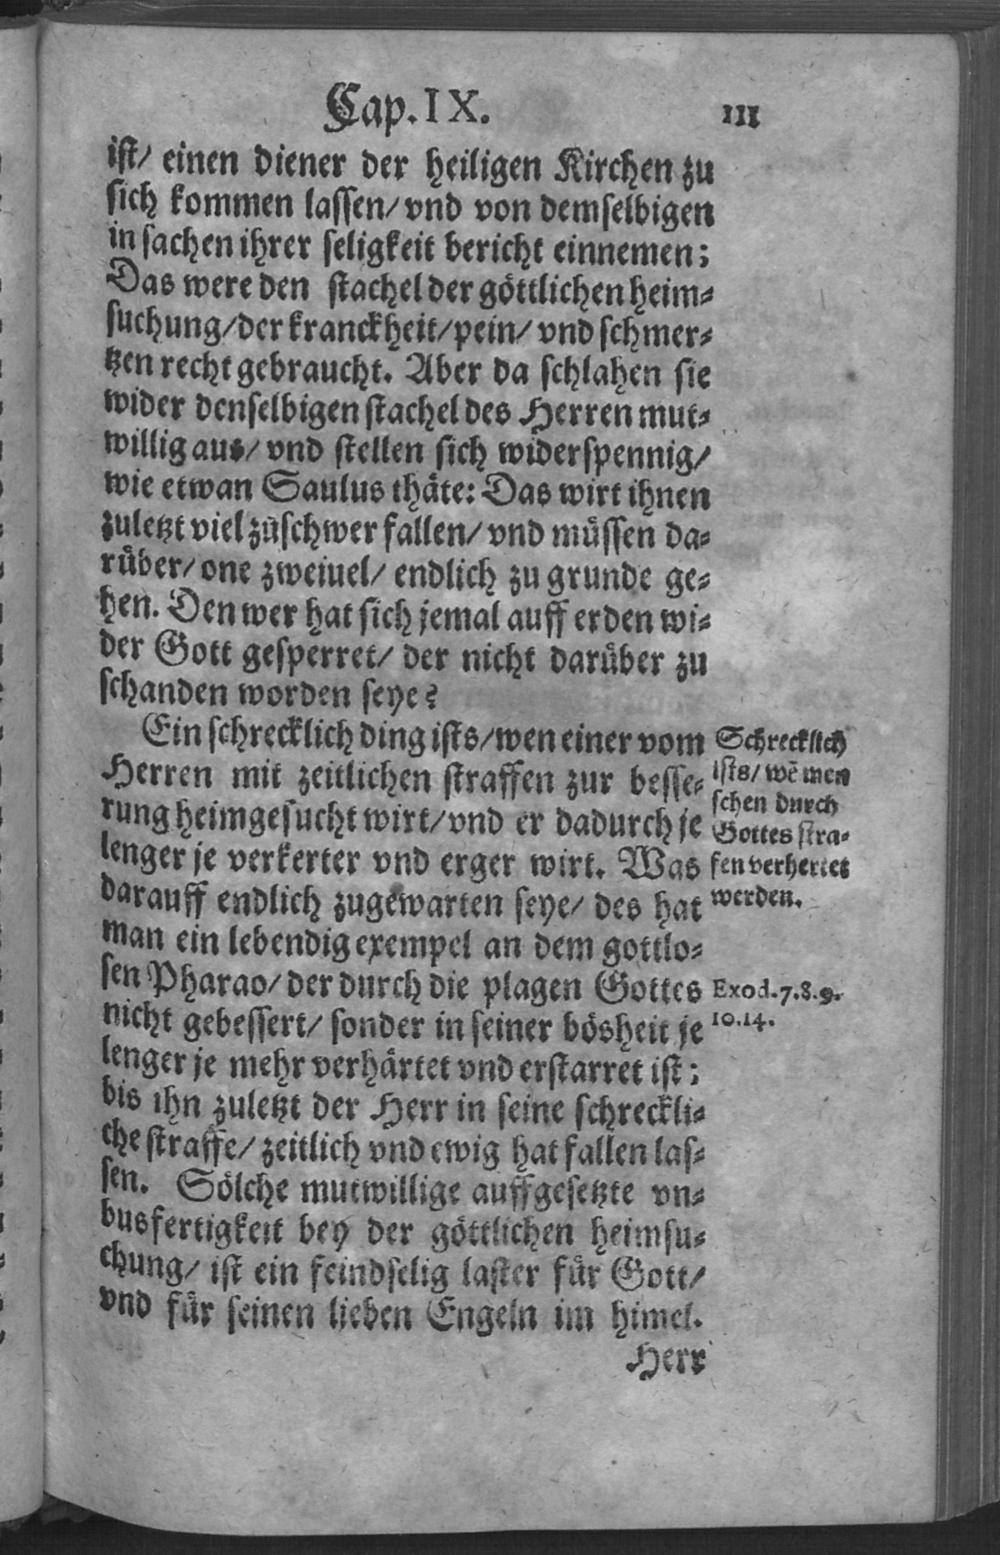 Cap. IX. 111
ist/ einen diener der heiligen Kirchen zu
sich kommen lassen/ vnd von demselbigen
in sachen ihrer seligkeit bericht einnemen;
Das were den stachel der göttlichen heim-
suchung/ der kranckheit/ pein/ vnd schmer-
tzen recht gebraucht. Aber da schlahen sie
wider denselbigen stachel des Herren mut-
willig aus/ vnd stellen sich widerspennig/
wie etwan Saulus thäte: Das wirt ihnen
zuletzt viel zůschwer fallen/ vnd müssen da-
rüber/ one zweiuel/ endlich zu grunde ge-
hen. Den wer hat sich jemal auff erden wi-
der Gott gesperret/ der nicht darüber zu
schanden worden seye?
Ein schrecklich ding ists/ wen einer vom
Herren mit zeitlichen straffen zur besse-
rung heimgesucht wirt/ vnd er dadurch je
lenger je verkerter vnd erger wirt. Was
darauff endlich zugewarten seye/ des hat
man ein lebendig exempel an dem gottlo-
sen Pharao/ der durch die plagen Gottes
nicht gebessert/ sonder in seiner bösheit je
lenger je mehr verhärtet vnd erstarret ist;
bis ihn zuletzt der Herr in seine schreckli-
che straffe/ zeitlich vnd ewig hat fallen las-
sen. Sölche mutwillige auffgesetzte vn-
busfertigkeit bey der göttlichen heimsu-
chung/ ist ein feindselig laster für Gott/
vnd für seinen lieben Engeln im himel.
Herr
Schrecklich
ists/ wē men
schen durch
Gottes stra-
fen verhertet
werden.
Exod. 7. 8. 9.
10. 14.